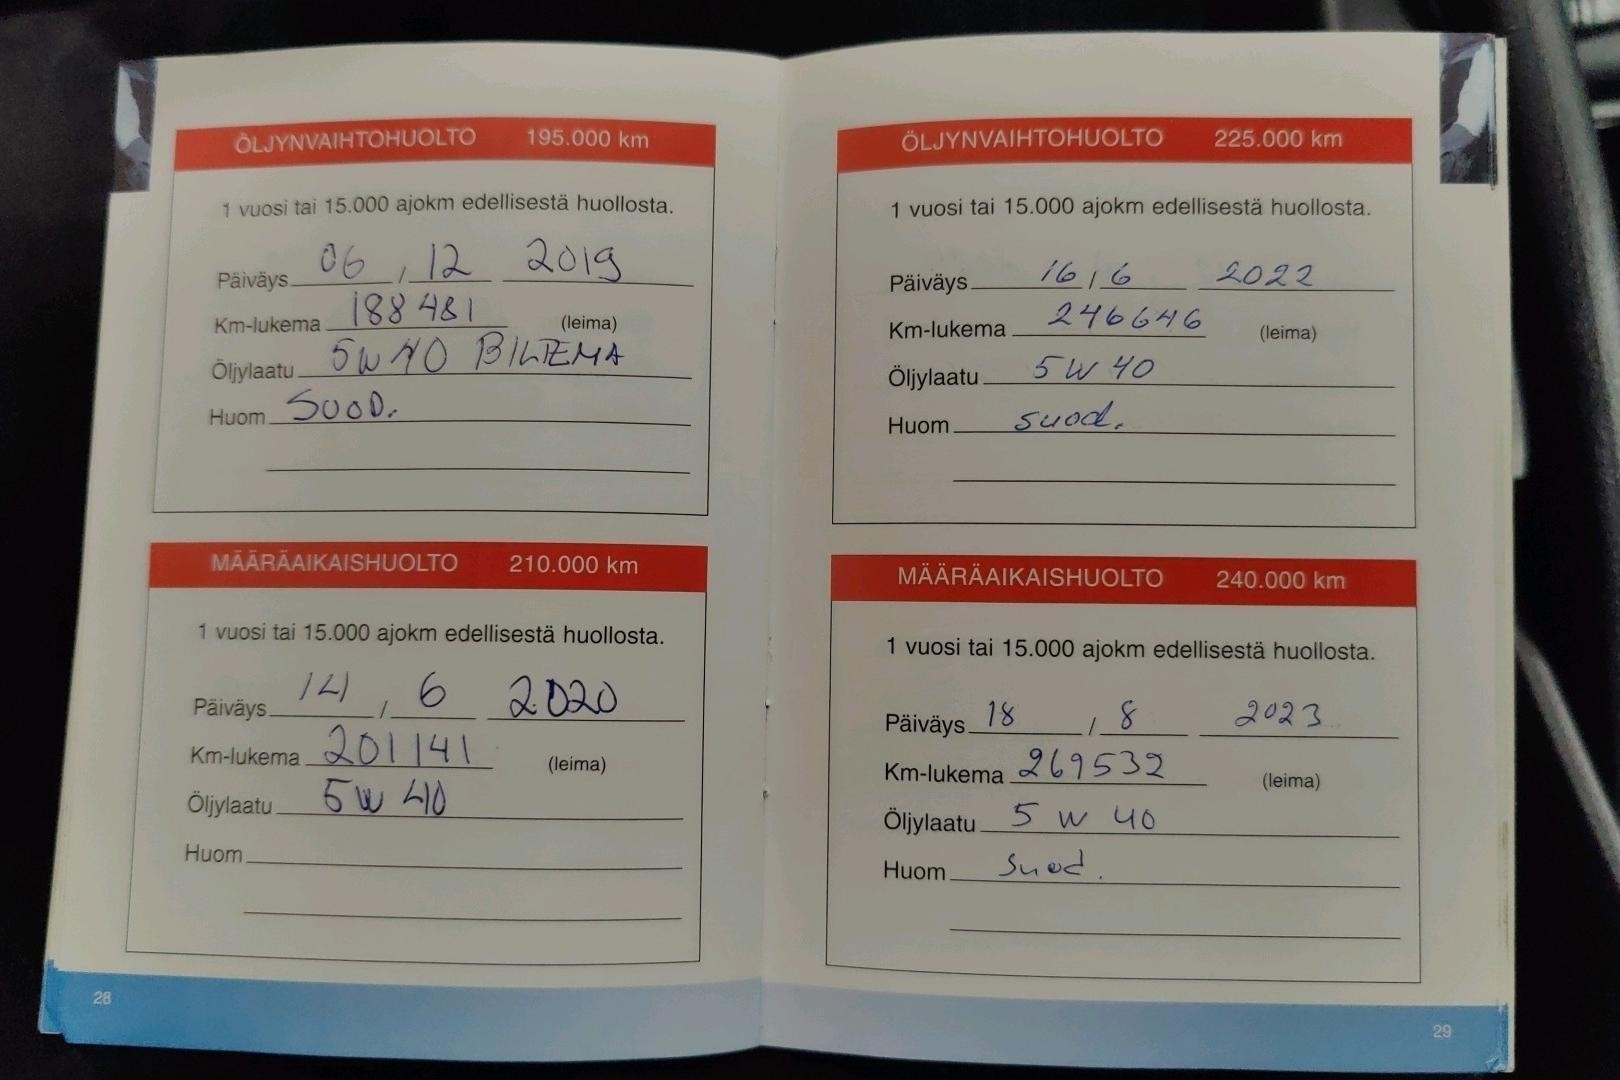 ÖLJYNVAIHTOHUOLTO 195.000 km
1 vuosi tai 15.000 ajokm edellisestä huollosta.
Päiväys 06 / 12 2019
Km-lukema 188 481 (leima)
Öljylaatu 5W40 BILTEMA
Huom SUOD.
MÄÄRÄAIKAISHUOLTO 210.000 km
1 vuosi tai 15.000 ajokm edellisestä huollosta.
Päiväys 14 / 6 2020
Km-lukema 201141 (leima)
Öljylaatu 5W 40
Huom
28
ÖLJYNVAIHTOHUOLTO 225.000 km
1 vuosi tai 15.000 ajokm edellisestä huollosta.
Päiväys 16 / 6 2022
Km-lukema 246646 (leima)
Öljylaatu 5W 40
Huom suod.
MÄÄRÄAIKAISHUOLTO 240.000 km
1 vuosi tai 15.000 ajokm edellisestä huollosta.
Päiväys 18 / 8 2023
Km-lukema 269532 (leima)
Öljylaatu 5 W 40
Huom Suod.
29